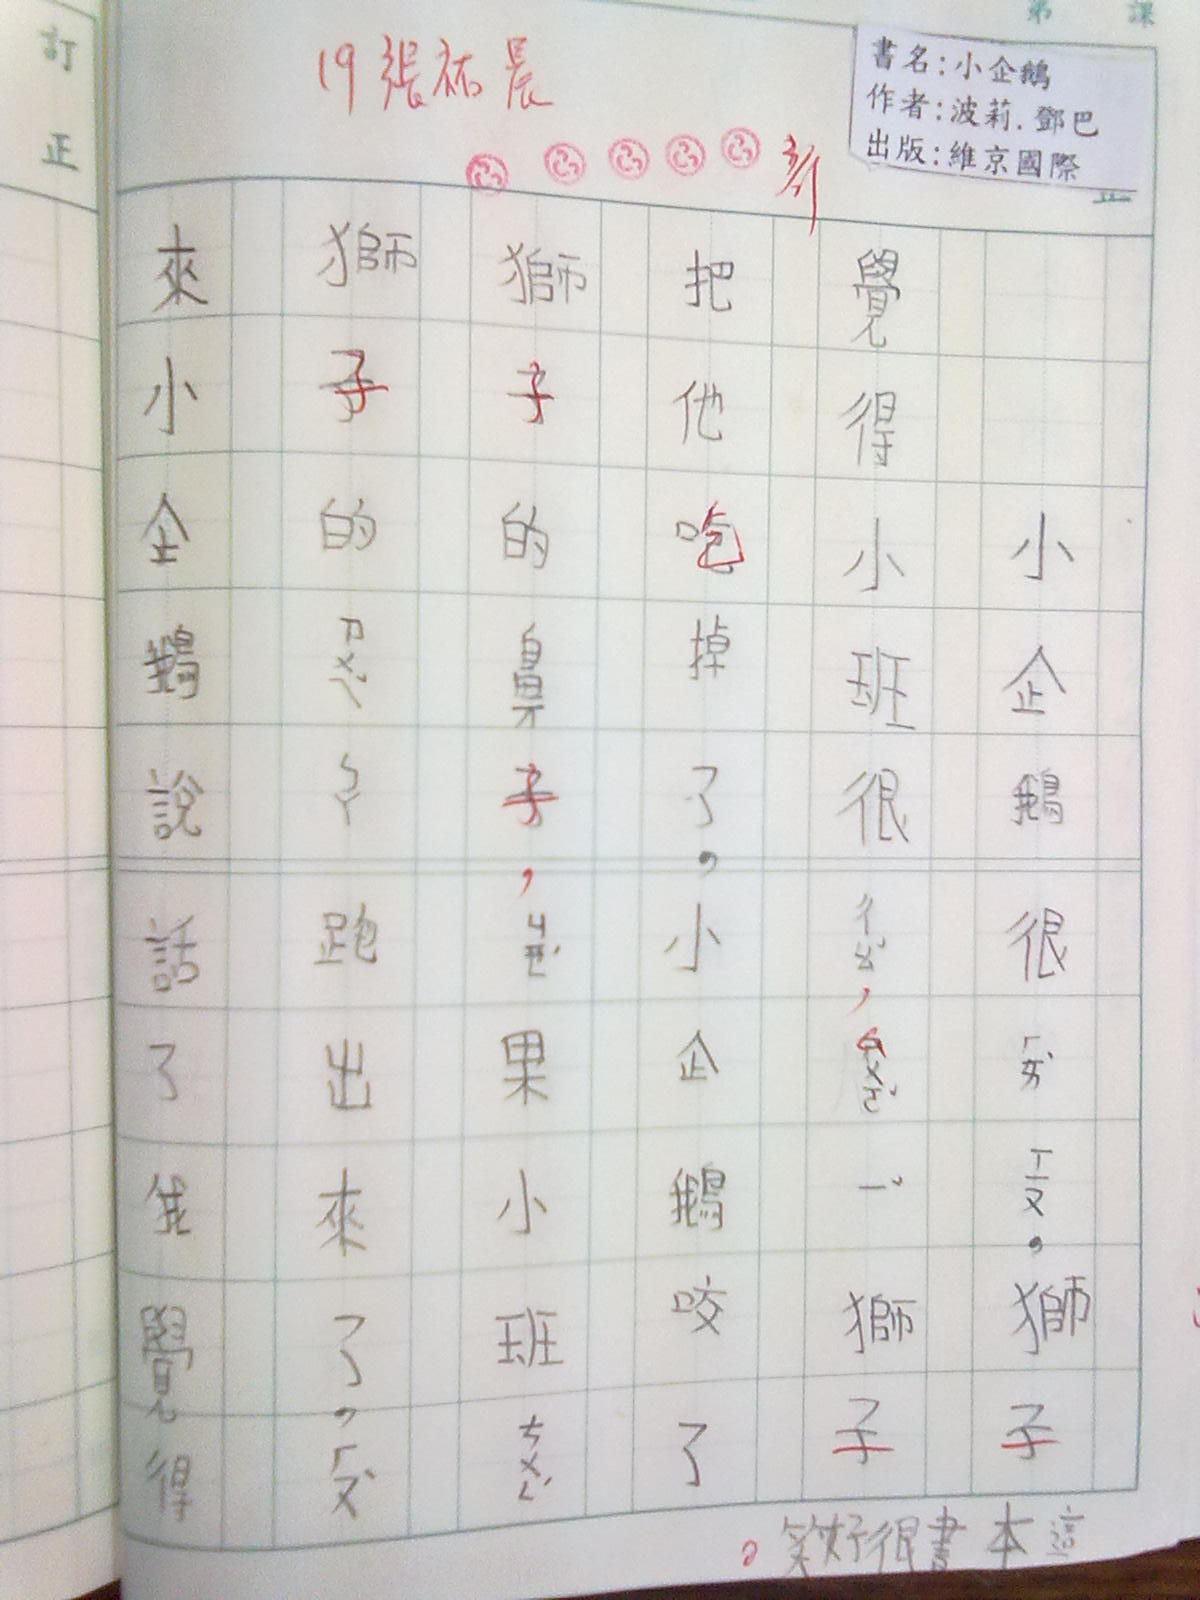 第 課
訂正
19 張祐晨
書名:小企鵝
作者:波莉.鄧巴
出版:維京國際
小企鵝很ㄏㄞˋㄒㄧㄡ,獅子
覺得小班很ㄔㄠˇ,ㄙㄨㄛˇㄧˇ獅子
把他吃掉了,小企鵝咬了
獅子的鼻子,ㄐㄧㄝˊ果小班ㄘㄨㄥˊ
獅子的ㄗㄨㄟˇㄅㄚ跑出來了,ㄏㄡˋ
來小企鵝說話了我覺得
這本書很好笑。